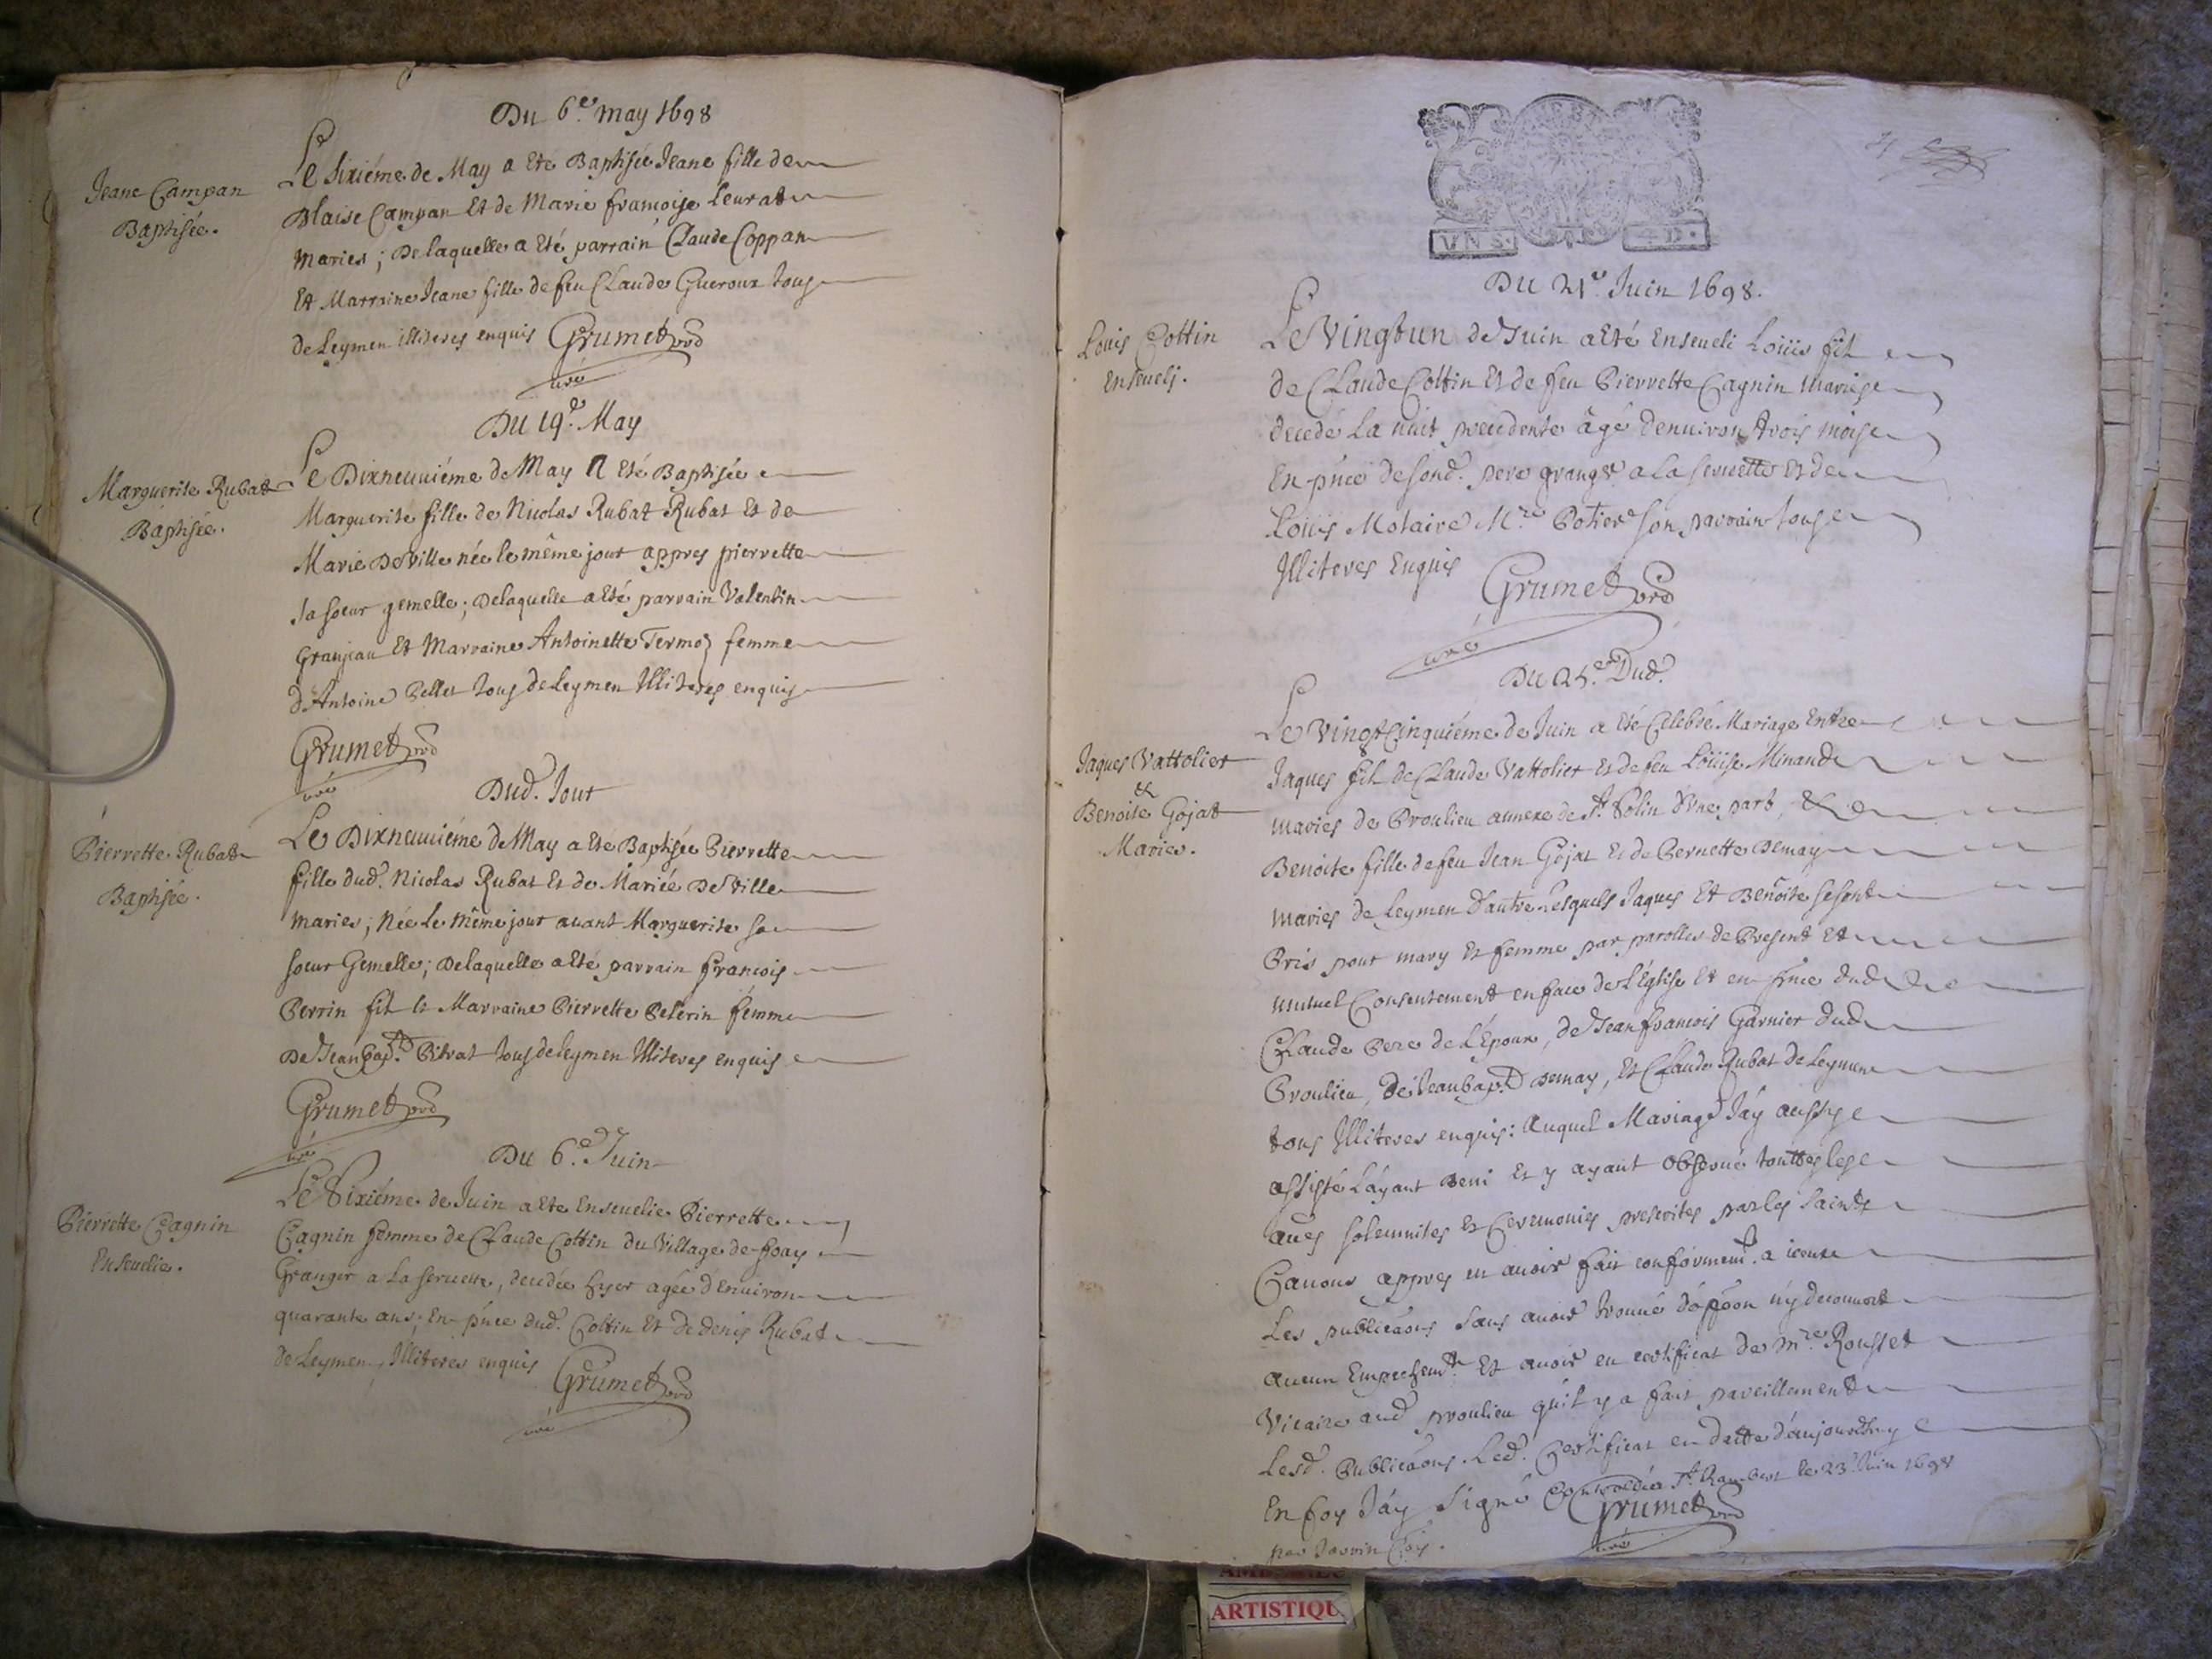 Du 6e. may 1698
Jeane Campan
Baptisée.
Le Sixiéme de May a Eté Baptisée Jeane fille de
Blaise Campan Et de Marie francoise Leurat
Maries ; De laquelle a Eté parrain Claude Coppan
Et Marraine Jeane fille de feu Claude Gueroux tous
de Leymen illiteres enquis Grumet
curé
Du 19e. May
Marguerite Rubat
Baptisée.
Le Dixneuuiéme de May A Eté Baptisée
Marguerite fille de Nicolas Rubat Rubat Et de
Marie DeVille née le même jour appres pierrette
sa soeur gemelle ; Delaquelle a Eté parrain Valentin
Granjean Et Marraine Antoinette Termoz femme
d'Antoine Pellet tous de Leymen Illiteres enquis
Grumet
curé
Dud. Jour
Pierrette Rubat
Baptisée.
Le Dixneuuiéme de May a Eté Baptisée Pierrette
fille dud. Nicolas Rubat Et de Mariée DeVille
maries ; Née le même jour auant Marguerite sa
soeur Gemelle ; Delaquelle a Eté parrain francois
Perrin fil Et Marraine Pierrette Pelerin femme
De Jean Bapt. Pitrat tous de leymen Illiteres enquis
Grumet
curé
Du 6e. Juin
Pierrette Cagnin
Enseuelie.
Le Sixiéme de Juin a Eté Enseuelie Pierrette
Cagnin femme de Claude Cottin du Village de
Granger a La seruette, decedée hyer agée d'Enuiron
quarante ans ; En pnce dud. Cottin Et de denis Rubat
de Leymen, Illiteres enquis Grumet
curé
VN S. 4 D.
Du 21e. Juin 1698.
Louis Cottin
Enseueli.
Le Vingtun de Juin a Eté Enseueli Loüis fil
de Claude Cottin Et de feu Pierrette Cagnin Maries
decedé La nuit precedente âgé d'enuiron trois mois
En pnce de sond. pere grangr. a La seruette Et de
Loüis Motaire Mre Potier son parrain tous
Illiteres Enquis
Grumet
curé
Du 25e. Dud.
Jaques Vattolier
&
Benoite Gojat
Maries.
Le Vingtcinquiéme de Juin a Eté Celebré Mariage Entre
Jaques fil de Claude Vattolier Et de feu Loüise Minand
maries de Proulieu annexe de St. Solin d'Vne part, &
Benoite fille de feu Jean Gojat Et de Pernette Demay
maries de Leymen d'autre Lesquels Jaques Et Benoite se sont
Pris pour mary Et femme par parolles de Present Et
mutuel Consentement en face de L'Eglise Et en pnce dud
Claude Pere de L'Epoux, de Jean francois Garnier dud
Proulieu, de Jean bapt. Demay, Et Claude Rubat de Leymen
tous Illiteres enquis : Auquel Mariage J'ay aussy
assisté L'ayant Beni Et y ayant obserué touttes les
solemnites Et Ceremonies prescrites par les saints
Canons appres en auoir fait conformemt. a iceux
Les publicaons sans auoir trouué d'oppoon n'y decouuert
aucun Empechemt. Et auoir eu certificat de mre. Rousset
Vicaire aud proulieu qu'il y a fait pareillement
Lesd. Publicaons. Led. Certificat en datte d'aujourdhuy
En foy J'ay signé Controllé a St. Rambert le 23. Juin 1698
Grumet
curé
ARTISTIQU